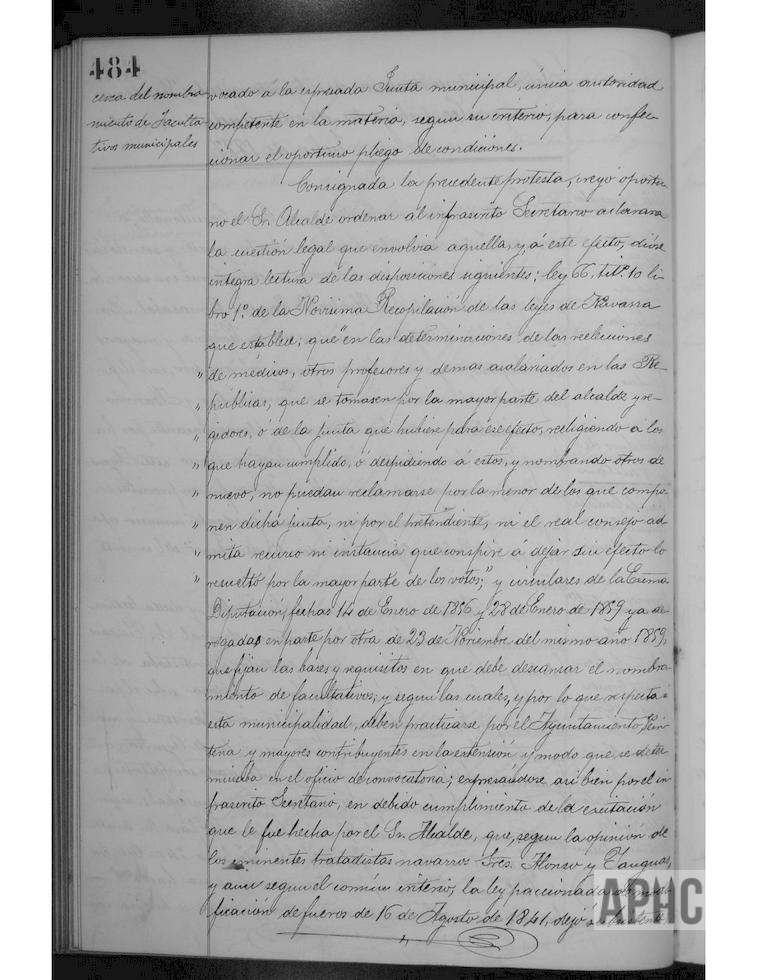 484
cerca del nombra
miento de Faculta
tivos municipales
vocado á la expresada Junta municipal, única autoridad
competente en la materia, segun su criterio, para confec-
cionar el oportuno pliego de condiciones.
Consignada la precedente protesta, creyó oportu
no el Sr. Alcalde ordenar al infrascrito Secretario aclarara
la cuestión legal que envolvia aquella, y, á este efecto, dióse
integra lectura de las disposiciones siguientes: ley 66, titº. 10 li
bro 1º. de la Novisima Recopilación de las leyes de Navarra
que establece; que "en las determinaciones de las reelecciones
" de médicos, otros profesores y demas asalariados en las Re-
" públicas, que se tomasen por la mayor parte del alcalde y re-
" gidores, ó de la junta que hubiere para ese efecto, reeligiendo á los
" que hayan cumplido, ó despidiendo á estos, y nombrando otros de
" nuevo, no puedan reclamarse por la menor de los que compo-
" nen dicha junta, ni por el pretendiente, ni el real consejo ad-
" mita recurso ni instancia que conspire á dejar sin efecto lo
" resuelto por la mayor parte de los votos;" y circulares de la Excma
Diputación, fechas 14 de Enero de 1856 y 28 de Enero de 1859 ya de-
rogadas en parte por otra de 23 de Noviembre del mismo año 1859,
que fijan las bases y requisitos en que debe descansar el nombra-
miento de facultativos; y segun las cuales, y por lo que respecta á
esta municipalidad, deben practicarse por el Ayuntamiento, Quin-
tena y mayores contribuyentes en la extensión y modo que se deter
minaba en el oficio de convocatoria; expresándose asi bien por el in
frascrito Secretario, en debido cumplimiento de la excitación
que le fue hecha por el Sr. Alcalde, que, segun la opinión de
los eminentes tratadistas navarros Sres. Alonso y Yanguas,
y aun segun el común criterio, la ley paccionada de modi-
ficación de fueros de 16 de Agosto de 1841, dejó subsistente
APHC